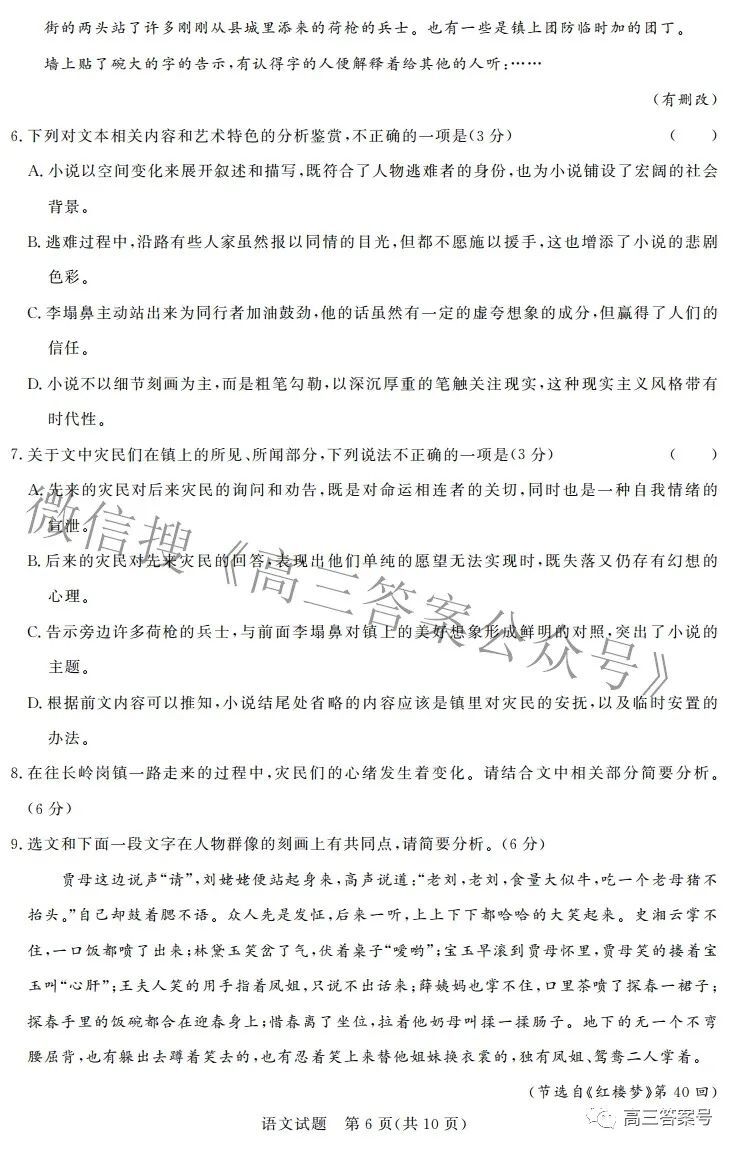 街的两头站了许多刚刚从县城里添来的荷枪的兵士。也有一些是镇上团防临时加的团丁。
墙上贴了碗大的字的告示,有认得字的人便解释着给其他的人听:……
(有删改)
6.下列对文本相关内容和艺术特色的分析鉴赏,不正确的一项是(3分) ( )
A.小说以空间变化来展开叙述和描写,既符合了人物逃难者的身份,也为小说铺设了宏阔的社会
背景。
B.逃难过程中,沿路有些人家虽然报以同情的目光,但都不愿施以援手,这也增添了小说的悲剧
色彩。
C.李塌鼻主动站出来为同行者加油鼓劲,他的话虽然有一定的虚夸想象的成分,但赢得了人们的
信任。
D.小说不以细节刻画为主,而是粗笔勾勒,以深沉厚重的笔触关注现实,这种现实主义风格带有
时代性。
7.关于文中灾民们在镇上的所见、所闻部分,下列说法不正确的一项是(3分) ( )
A.先来的灾民对后来灾民的询问和劝告,既是对命运相连者的关切,同时也是一种自我情绪的
宣泄。
B.后来的灾民对先来灾民的回答,表现出他们单纯的愿望无法实现时,既失落又仍存有幻想的
心理。
C.告示旁边许多荷枪的兵士,与前面李塌鼻对镇上的美好想象形成鲜明的对照,突出了小说的
主题。
D.根据前文内容可以推知,小说结尾处省略的内容应该是镇里对灾民的安抚,以及临时安置的
办法。
8.在往长岭岗镇一路走来的过程中,灾民们的心绪发生着变化。请结合文中相关部分简要分析。
(6分)
9.选文和下面一段文字在人物群像的刻画上有共同点,请简要分析。(6分)
贾母这边说声“请”,刘姥姥便站起身来,高声说道:“老刘,老刘,食量大似牛,吃一个老母猪不
抬头。”自己却鼓着腮不语。众人先是发怔,后来一听,上上下下都哈哈的大笑起来。史湘云掌不
住,一口饭都喷了出来;林黛玉笑岔了气,伏着桌子“嗳哟”;宝玉早滚到贾母怀里,贾母笑的搂着宝
玉叫“心肝”;王夫人笑的用手指着凤姐,只说不出话来;薛姨妈也掌不住,口里茶喷了探春一裙子;
探春手里的饭碗都合在迎春身上;惜春离了坐位,拉着他奶母叫揉一揉肠子。地下的无一个不弯
腰屈背,也有躲出去蹲着笑去的,也有忍着笑上来替他姐妹换衣裳的,独有凤姐、鸳鸯二人掌着。
(节选自《红楼梦》第40回)
语文试题 第6页(共10页)
微信搜《高三答案公众号》
高三答案号